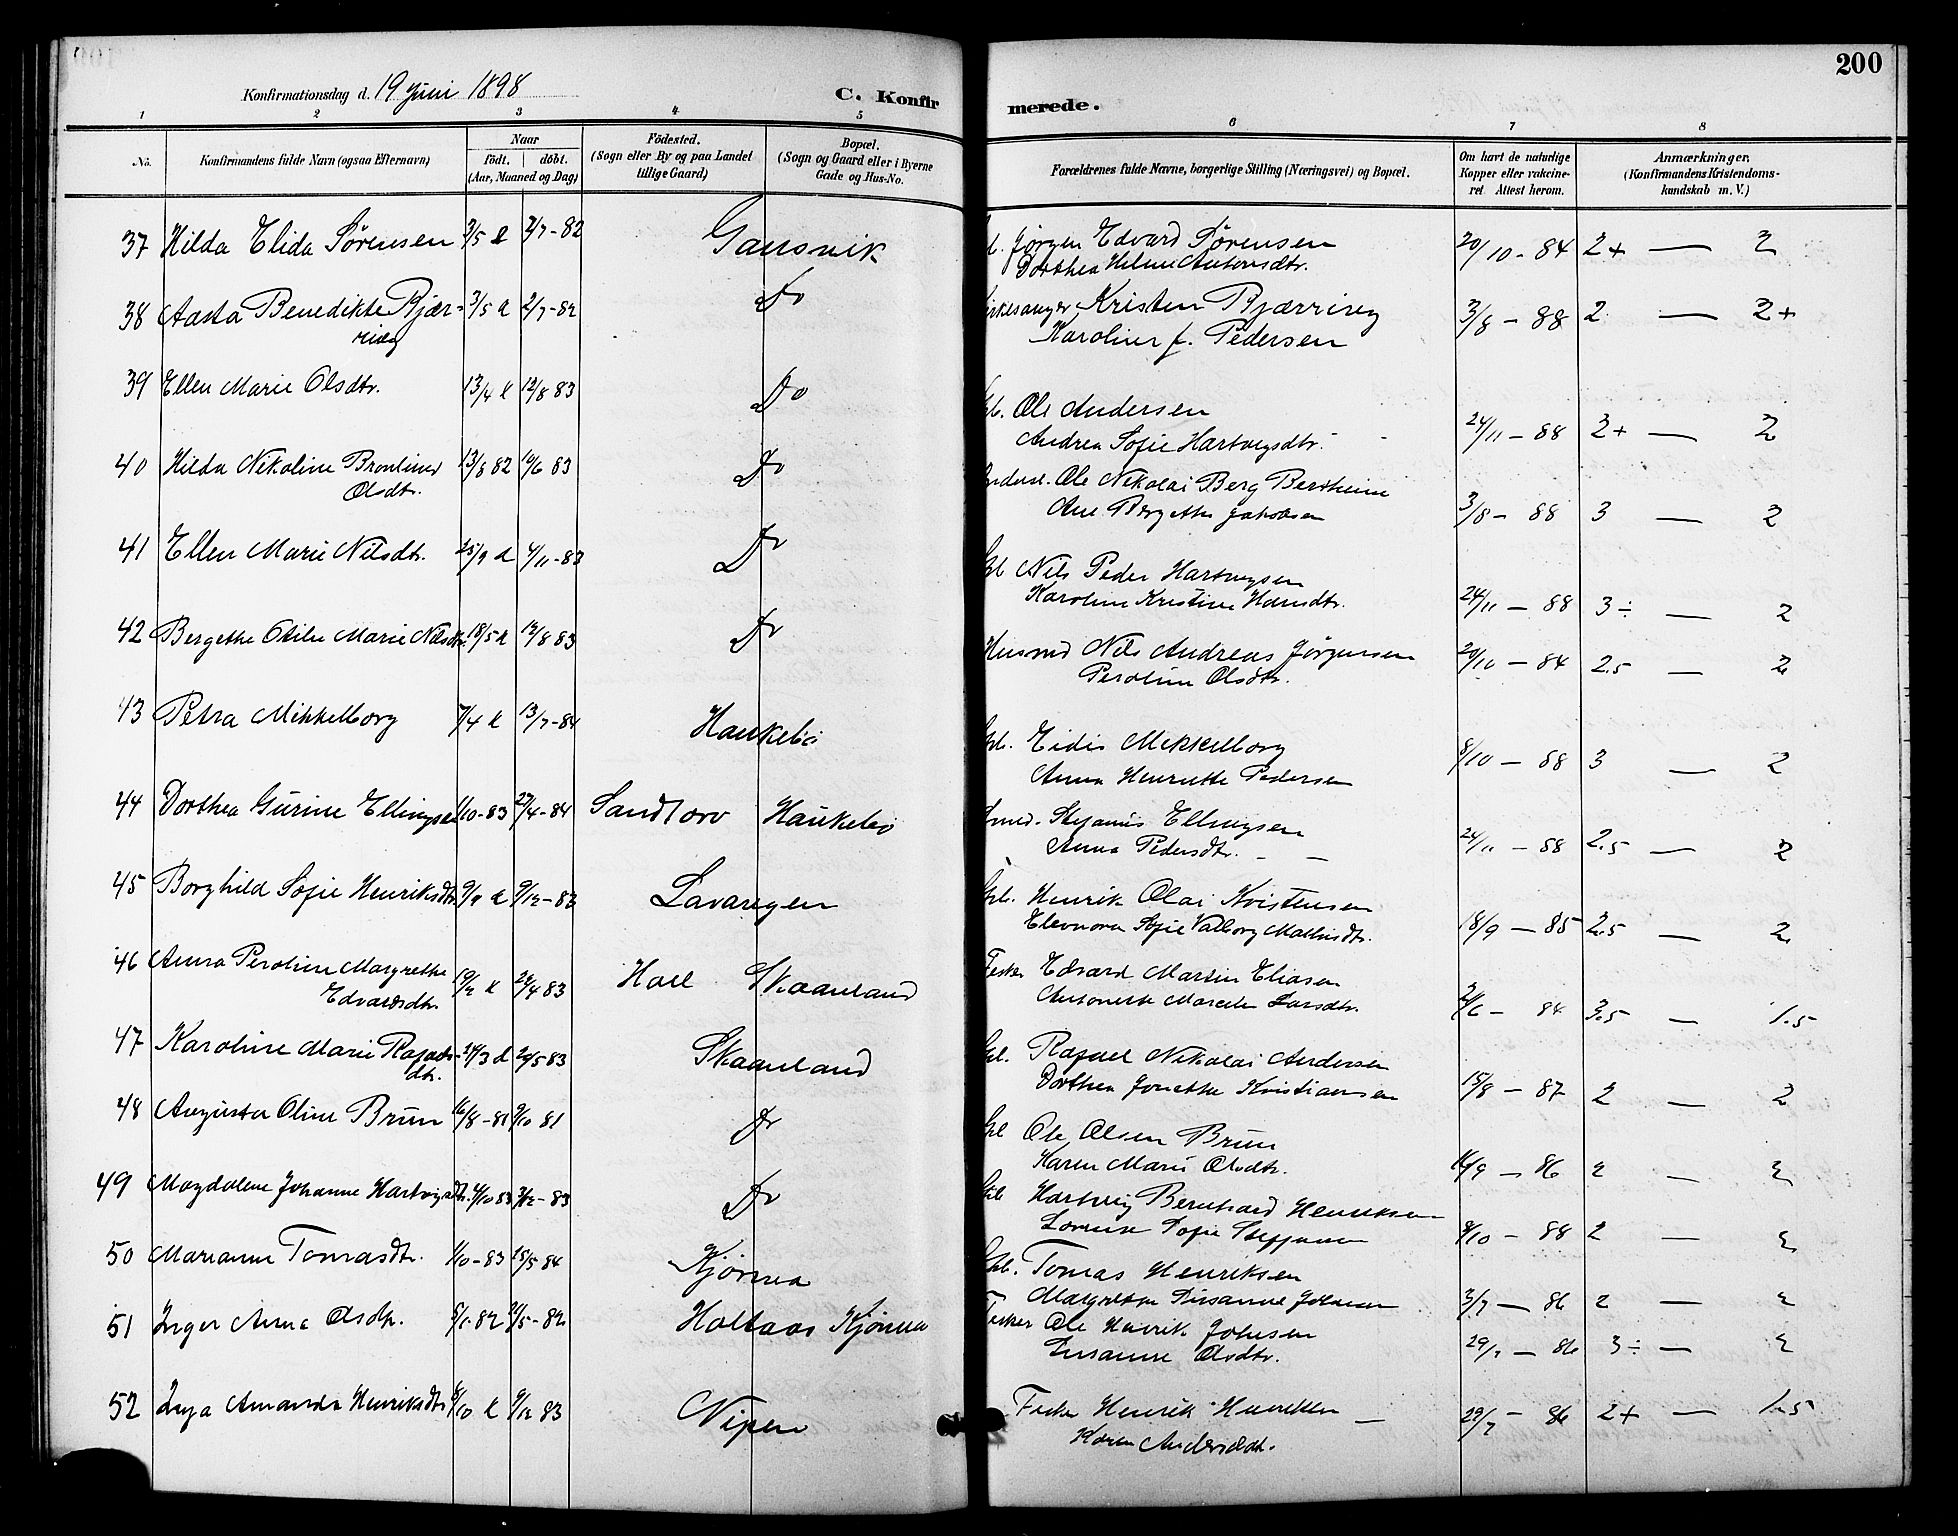 200
Konfirmationsdag d. 19 Juni 1898
C. Konfirmerede.
1 2 3 4 5 6 7 8
No. Konfirmandens fulde Navn (ogsaa Efternavn) Naar födt. döbt. (Aar, Maaned og Dag) Födested. (Sogn eller By og paa Landet tillige Gaard) Bopæl. (Sogn og Gaard eller i Byerne Gade og Hus-No. Forældrenes fulde Navne, borgerlige Stilling (Næringsvei) og Bopæl. Om havt de naturlige Kopper eller vakcineret. Attest herom. Anmærkninger. (Konfirmandens Kristendomskundskab m. V.)
37 Hilda Elida Sörensen 2/7-82 Gausvik Jörgen Edvard Sörensen 20/10-84 2+ — 2
Dorthea Antonsdtr.
38 Aasta Benedikte Bjær- 3/5 2/7-82 Do Kristen Bjærring 3/8-88 2 — 2+
ring Karoline f. Pedersen
39 Ellen Marie Olsdtr. 13/4 12/8 83 Do Ole Andersen 24/11-88 2+ — 2
Andrea Sofie Hartvigsdtr.
40 Hilda Nikoline 13/8 82 10/6 83 Do Ole Nikolai Berg 3/8-88 3 — 2
Olsdtr. Ane Bergethe Jakobsen
41 Ellen Marie Nilsdtr. 25/9 4/11-83 Do Nils Peder Hartvigsen 24/11-88 3÷ — 2
Karoline Kristine
42 Bergethe Otilie Marie Nilsdtr. 18/5 12/8 83 Do Husmd Nils Andreas Jörgensen 20/10-84 2.5 — 2
Peroline Olsdtr.
43 Petra Mikkelborg 7/4 13/7-84 Haukebö Eidis Mikkelborg 8/10-88 3 — 2
Anna Henriette Pedersen
44 Dorthea Gurine Ellingsen 1/10-83 27/4-84 Sandtorv Haukebö Smed. Stefanus Ellingsen 24/11-88 2.5 — 2
Anna Pedersdtr.
45 Borghild Sofie Henriksdtr. 9/9 9/12-83 Lavangen Henrik Olai Kristensen 18/9-85 2.5 — 2
Eleonora Sofie Valborg
46 Anna Peroline Margrethe 19/2 29/4 83 Holl Skaanland Fisker Edvard Martin Eliasen 2/6-84 3.5 — 1.5
Edvardsdtr. Antonette Larsdtr.
47 Karoline Marie Rafaels- 24/3 20/5 83 Skaanland Rafael Nikolai Andersen 15/8-87 2 — 2
dtr. Dorthea Jonette Kristiansen
48 Augusta Oline Brun 16/8-81 9/10 81 Do Ole Olsen Brun 14/9-86 2 — 2
Karen Marie Olsdtr.
49 Magdalene Johanne Hartvigsdtr. 4/10 83 Do Hartvig Bernhard Henriksen 9/10-88 2 — 2
Sofie Steffensen
50 Marianne Tomasdtr. 1/10-83 15/5 84 Kjönna Tomas Henriksen 3/7-86 2 — 2
Margrethe Susanne
51 Inger Anna Olsdtr. 5/1-82 Holtaas Kjönna Fisker Ole Henrik Johnsen 29/7-86 3÷ — 2
Susanne Olsdtr.
52 Inga Amanda Henriksdtr. 8/10 9/12 83 Nipen Fisker Henrik Henriksen 29/7-86 2+ — 1.5
Karen Andersdtr.